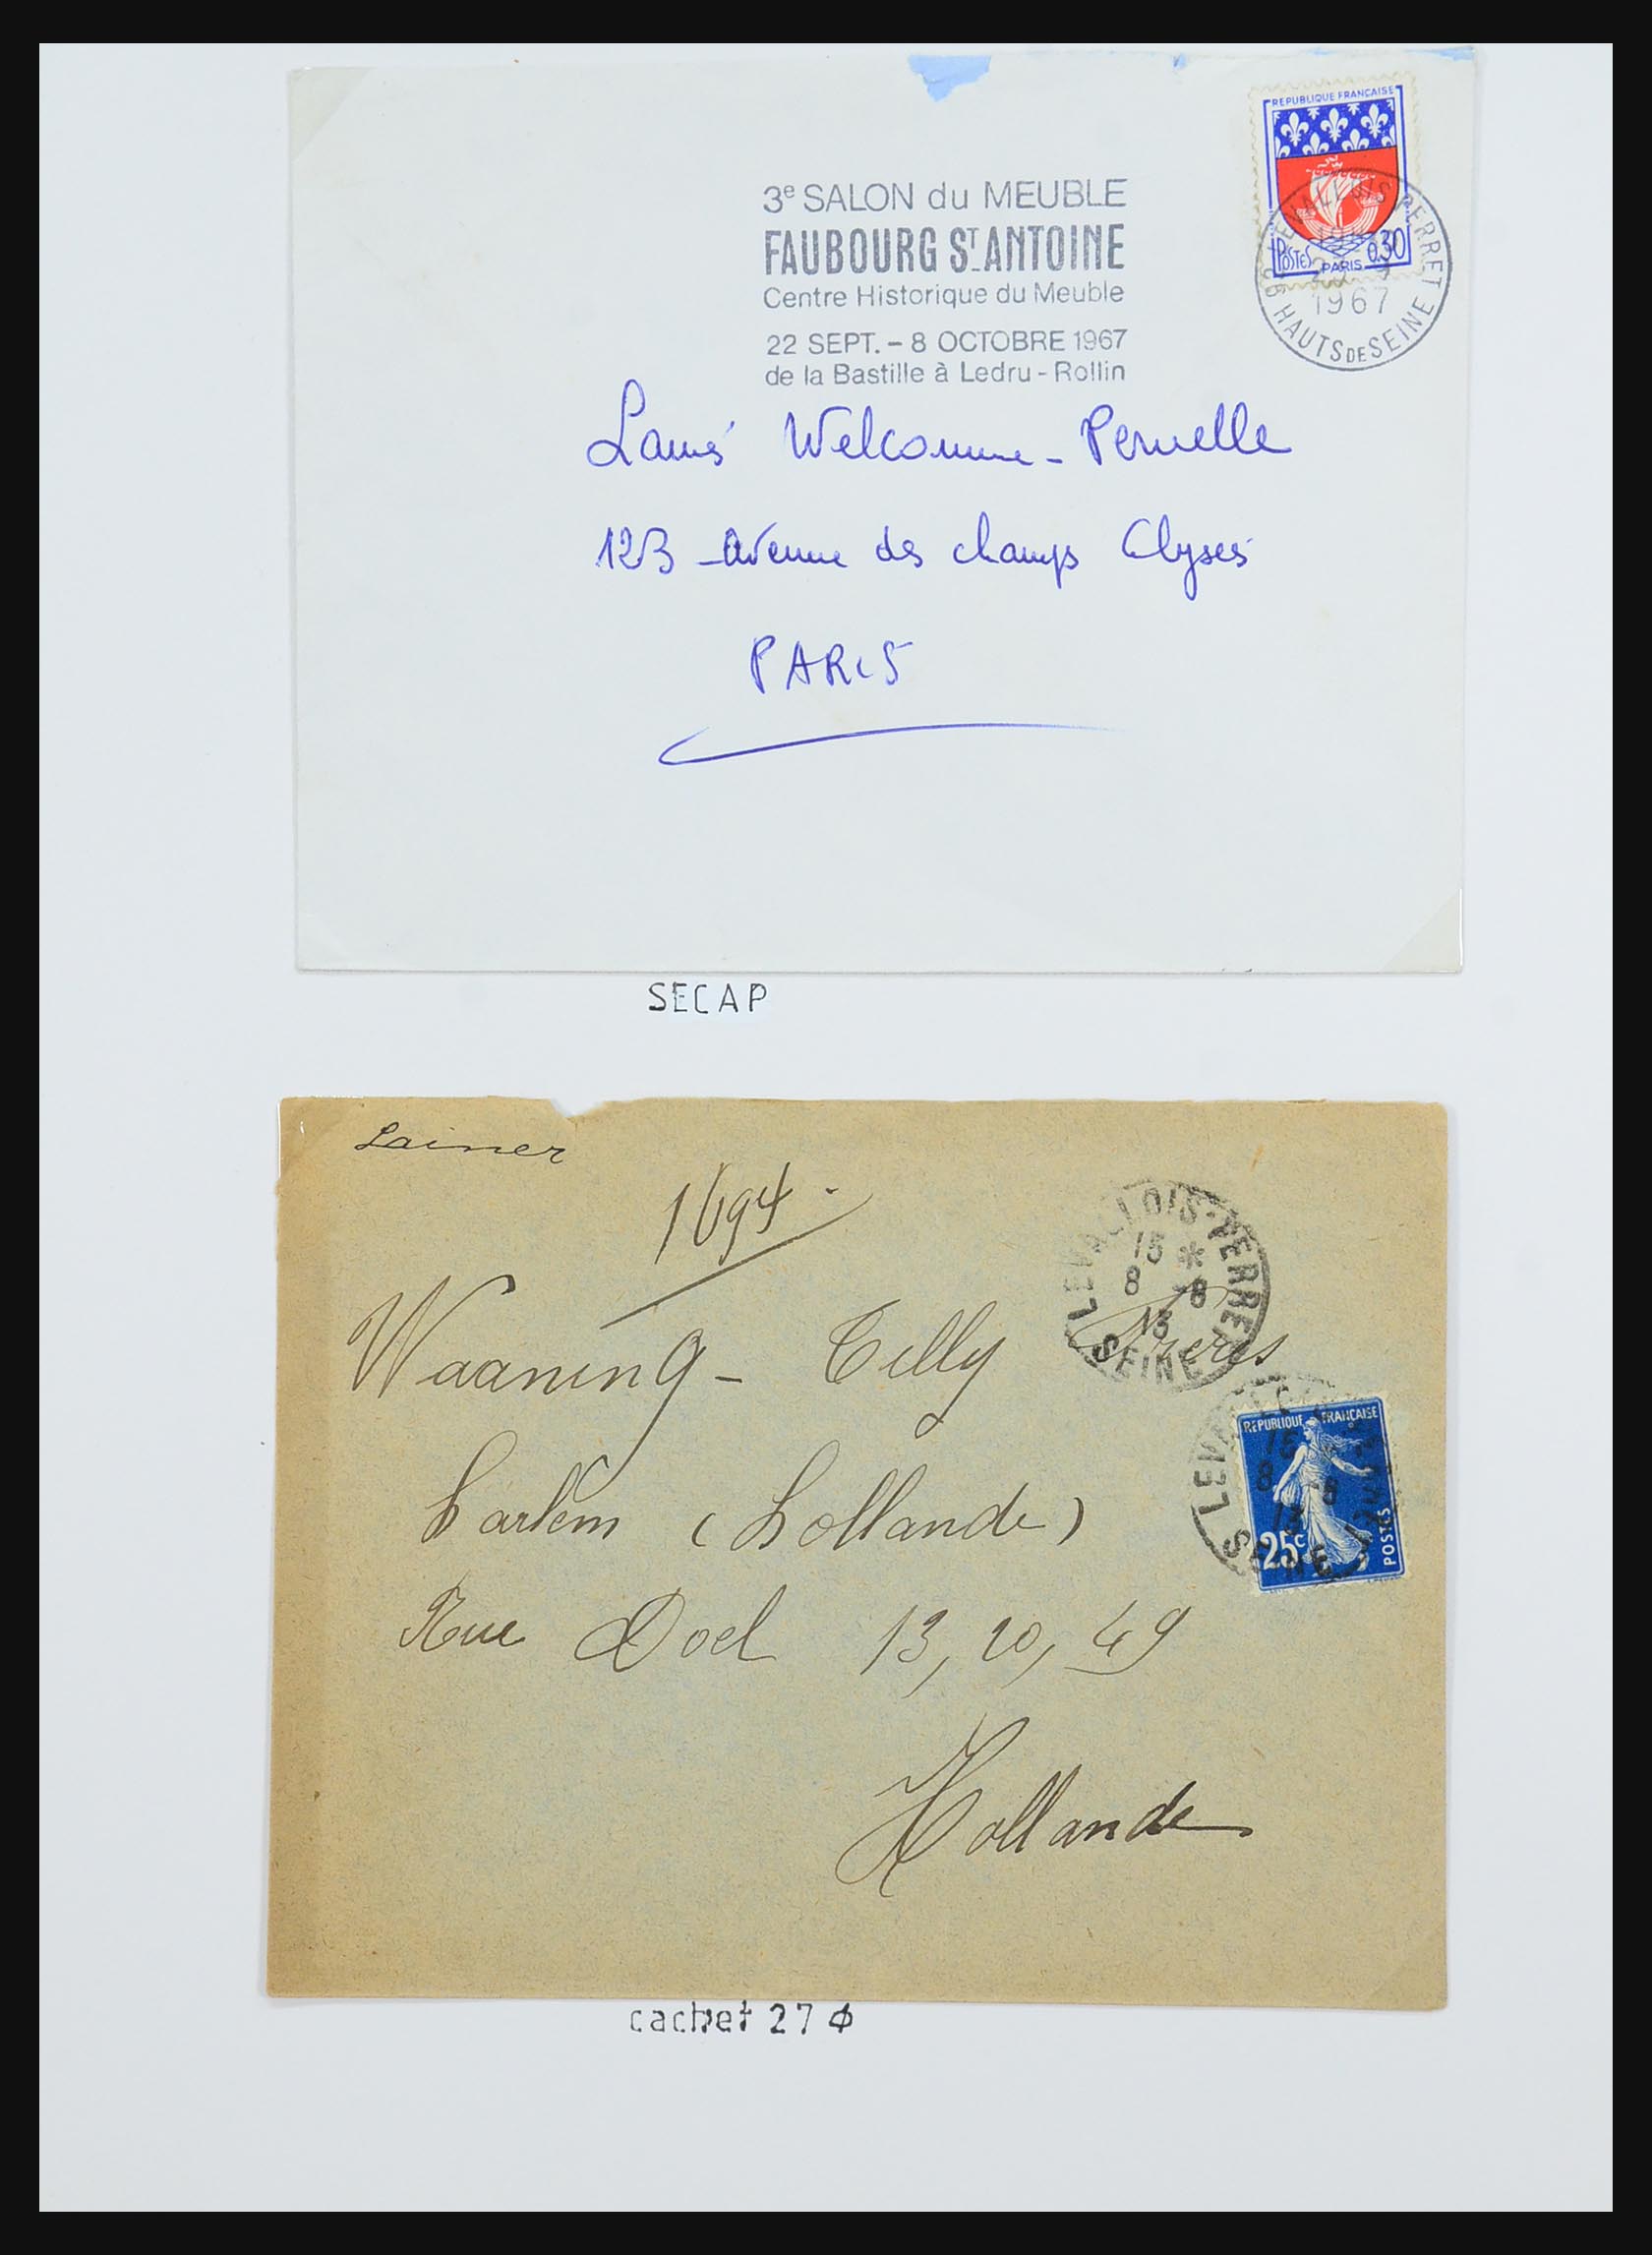 REPUBLIQUE FRANCAISE
POSTES PARIS 0.30
92 LEVALLOIS PERRET
1967
HAUTS DE SEINE
3e SALON du MEUBLE
FAUBOURG ST ANTOINE
Centre Historique du Meuble
22 SEPT. – 8 OCTOBRE 1967
de la Bastille à Ledru - Rollin
Welcomme - Pernelle
123 avenue des champs Elysés
PARIS
SECAP
Lainer
1694.
LEVALLOIS-PERRET
15 *
8 -8
13
SEINE
Waaning - Tilly Frères
harlem (hollande)
REPUBLIQUE FRANCAISE
25c POSTES
LEVALLOIS
15
8 -8
13
SEINE
Rue Doel 13, 20, 49
Hollande
cachet 27 ϕ